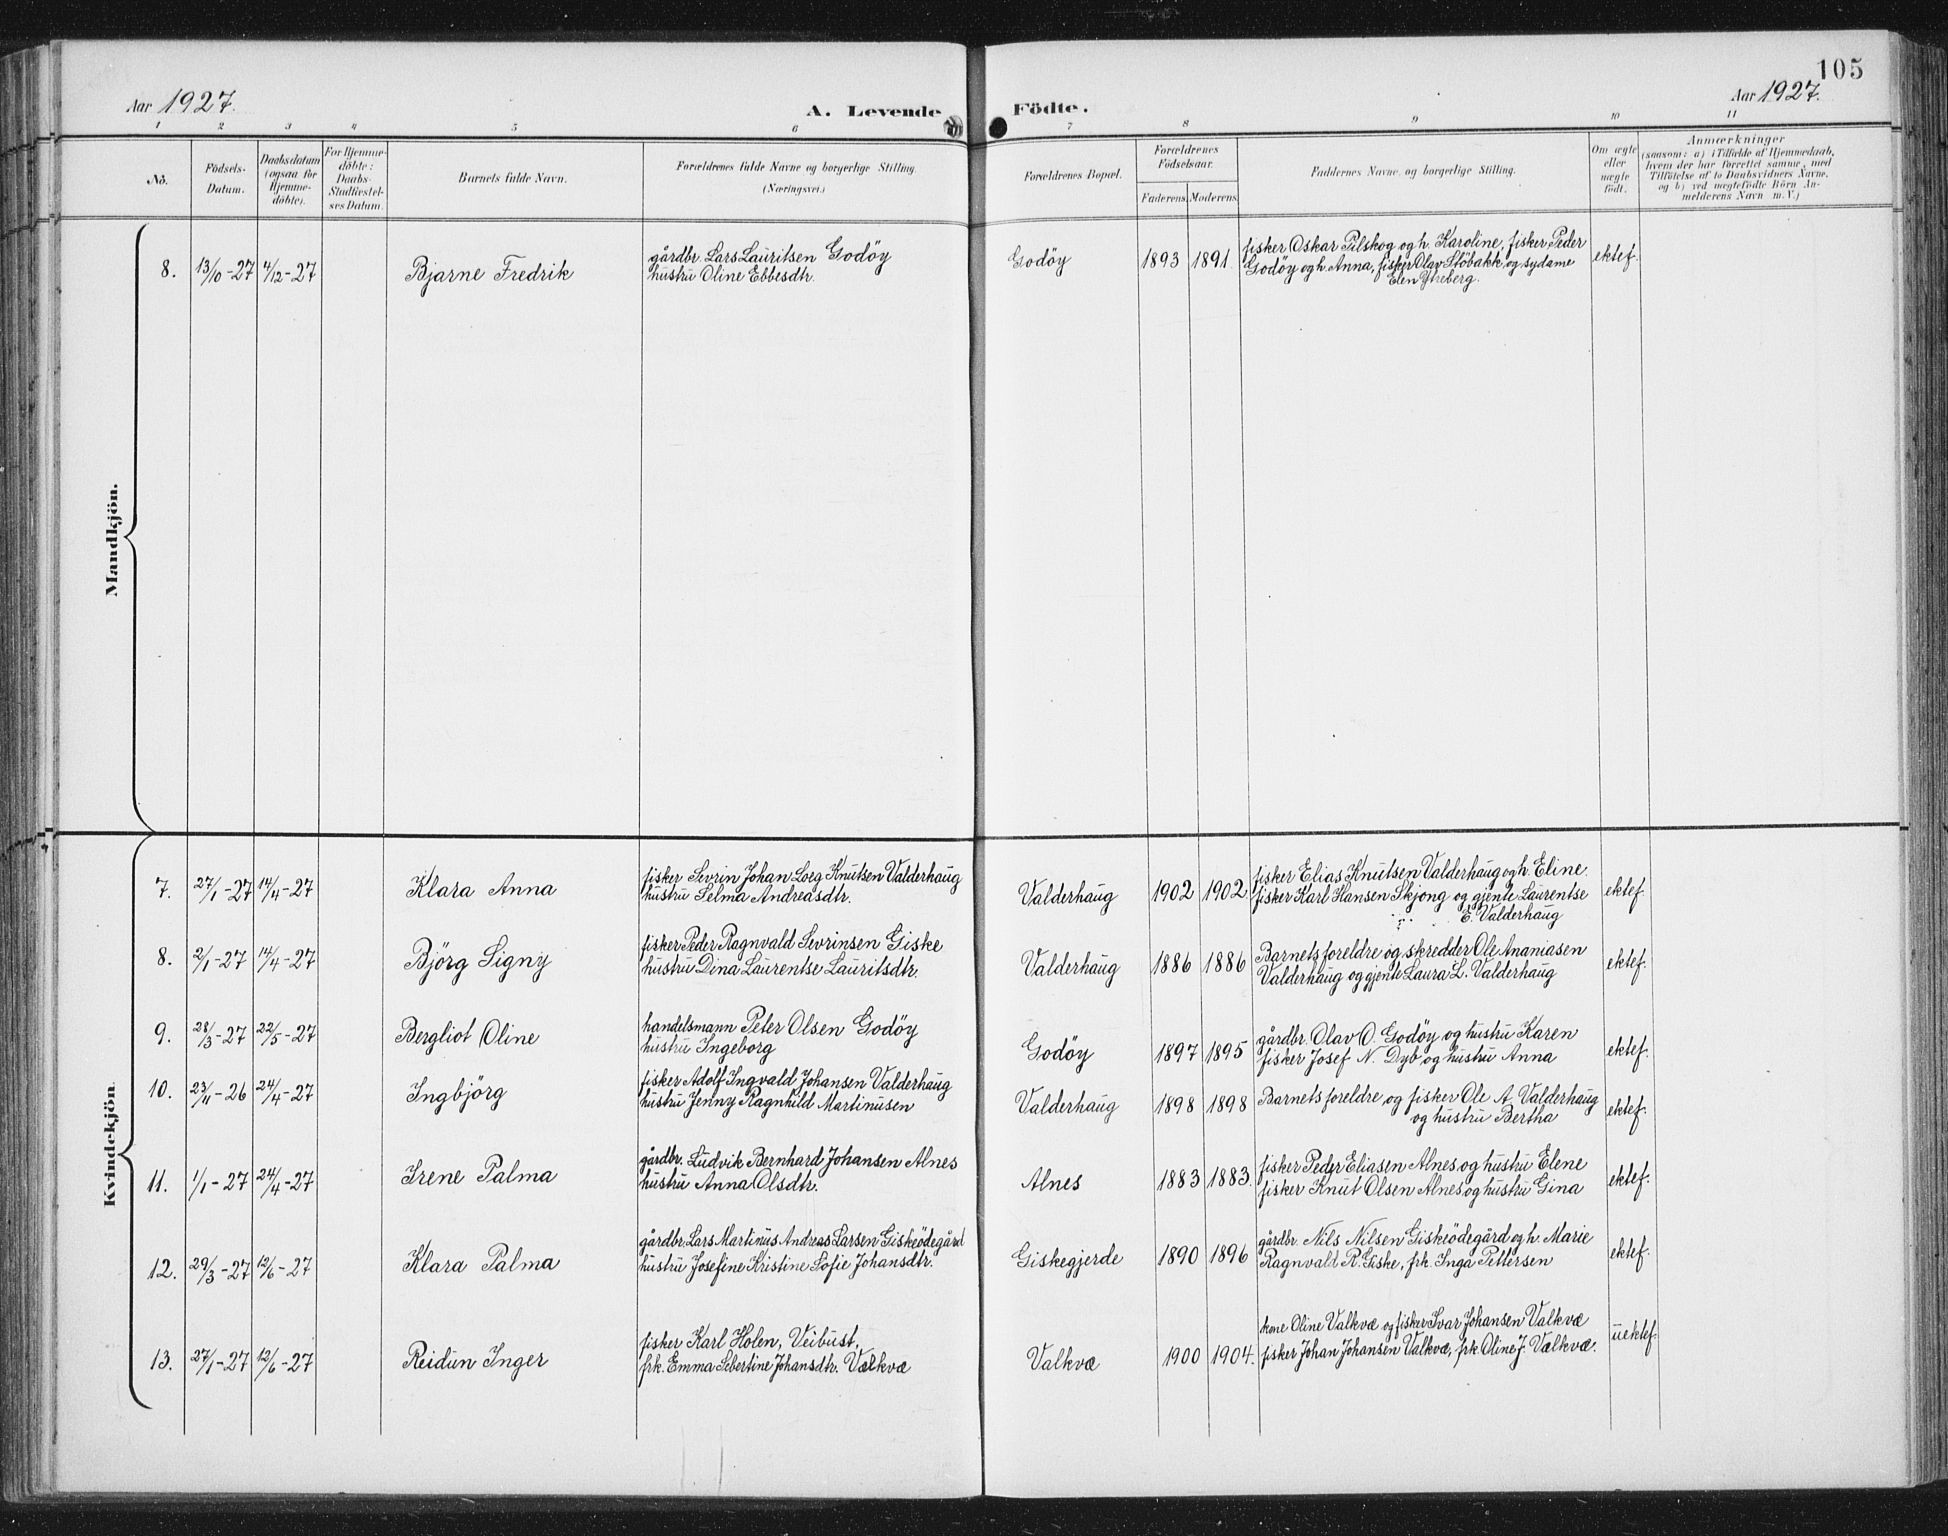 105
Aar 1927.
A. Levende Födte.
Aar 1927.
1 2 3 4 5 6 7 8 9 10 11
No.
Födsels-Datum.
Daabsdatum (ogsaa for Hjemme-döbte).
For Hjemme-döbte: Daabs-Stadfæstel-ses Datum.
Barnets fulde Navn.
Forældrenes fulde Navne og borgerlige Stilling.
(Næringsvei.)
Forældrenes Bopæl.
Forældrenes Födselsaar.
Faderens. Moderens.
Faddernes Navne og borgerlige Stilling.
Om ægte eller uægte født.
Anmærkninger
(saasom: a) i Tilfælde af Hjemmedaab, hvem der har forrettet samme, med Tilföielse af to Daabsvidners Navne, og b) ved uægtefödte Börn Anmelderens Navn m. V.)
Mandkjön.
8. 13/10-27 4/12-27 Bjarne Fredrik
gårdbr. Lars Lauritsen Godöy
hustru Oline Ebbesdtr.
Godöy 1893 1891
fisker Oskar Pilskog og h. Karoline, fisker Peder
Godöy og h. Anna, fisker Olav Stöbakk, og sydame
Elen Ytreberg.
ektef.
Kvindekjön.
7. 27/1-27 14/4-27 Klara Anna
fisker Sevrin Johan Loeg Knutsen Valderhaug
hustru Selma Andreasdtr.
Valderhaug 1902 1902
fisker Elias Knutsen Valderhaug og h. Eline.
fisker Karl Hansen Skjong og gjente Laurentse
E. Valderhaug
ektef.
8. 2/1-27 14/4-27 Björg Signy
fisker Peder Ragnvald Sevrinsen Giske
hustru Dina Laurentse Lauritsdtr.
Valderhaug 1886 1886
Barnets foreldre og skredder Ole Ananiasen
Valderhaug og gjente Laura L. Valderhaug
ektef.
9. 28/3-27 22/5-27 Bergliot Oline
handelsmann Peter Olsen Godöy
hustru Ingeborg
Godöy 1897 1895
gårdbr. Olav O. Godöy og hustru Karen
fisker Josef N. Dyb og hustru Anna
ektef.
10. 23/11-26 24/4-27 Ingbjörg
fisker Adolf Ingvald Johansen Valderhaug
hustru Jenny Ragnhild Martinusen
Valderhaug 1898 1898
Barnets foreldre og fisker Ole A. Valderhaug
og hustru Bertha
ektef.
11. 1/1-27 24/4-27 Irene Palma
gårdbr. Ludvik Bernhard Johansen Alnes
hustru Anna Olsdtr.
Alnes 1883 1883.
fisker Peder Eliasen Alnes og hustru Elene
fisker Knut Olsen Alnes og hustru Gina
ektef.
12. 29/3-27 12/6-27 Klara Palma
gårdbr. Lars Martinus Andreas Larsen Giskeödegård
hustru Josefine Kristine Sofie Johansdtr.
Giskegjerde 1890 1896
gårdbr. Nils Nilsen Giskeödegård og h. Marie
Ragnvald R. Giske, frk. Inga Pettersen
ektef.
13. 27/1-27 12/6-27 Reidun Inger
fisker Karl Holen, Veibust,
frk. Emma Sebertine Johansdtr. Valkvæ
Valkvæ 1900 1904.
kone Oline Valkvæ og fisker Ivar Johansen Valkvæ
fisker Johan Johansen Valkvæ, frk. Oline J. Valkvæ.
uektef.